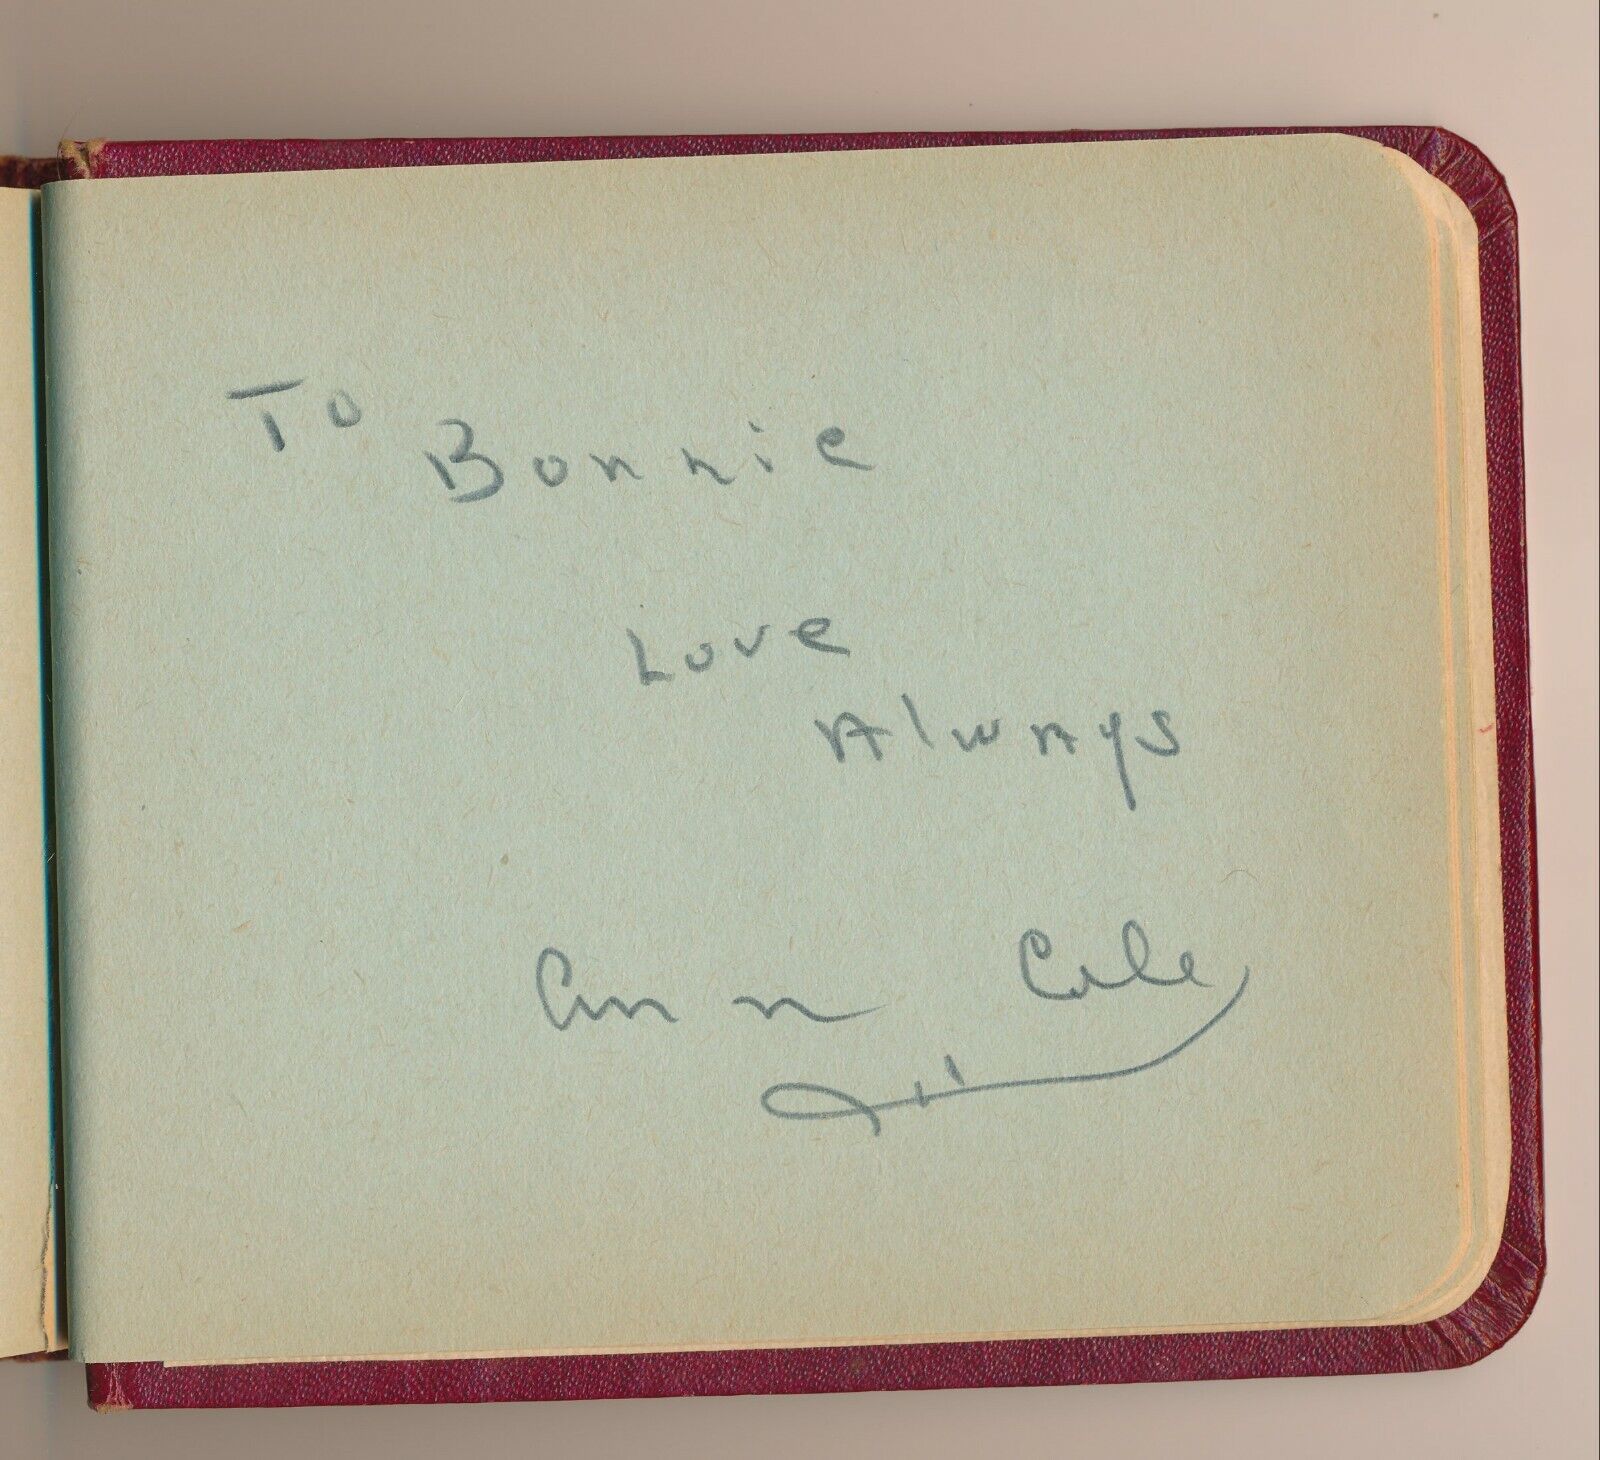 To
Bonnie
Love
Always
Ann Cole